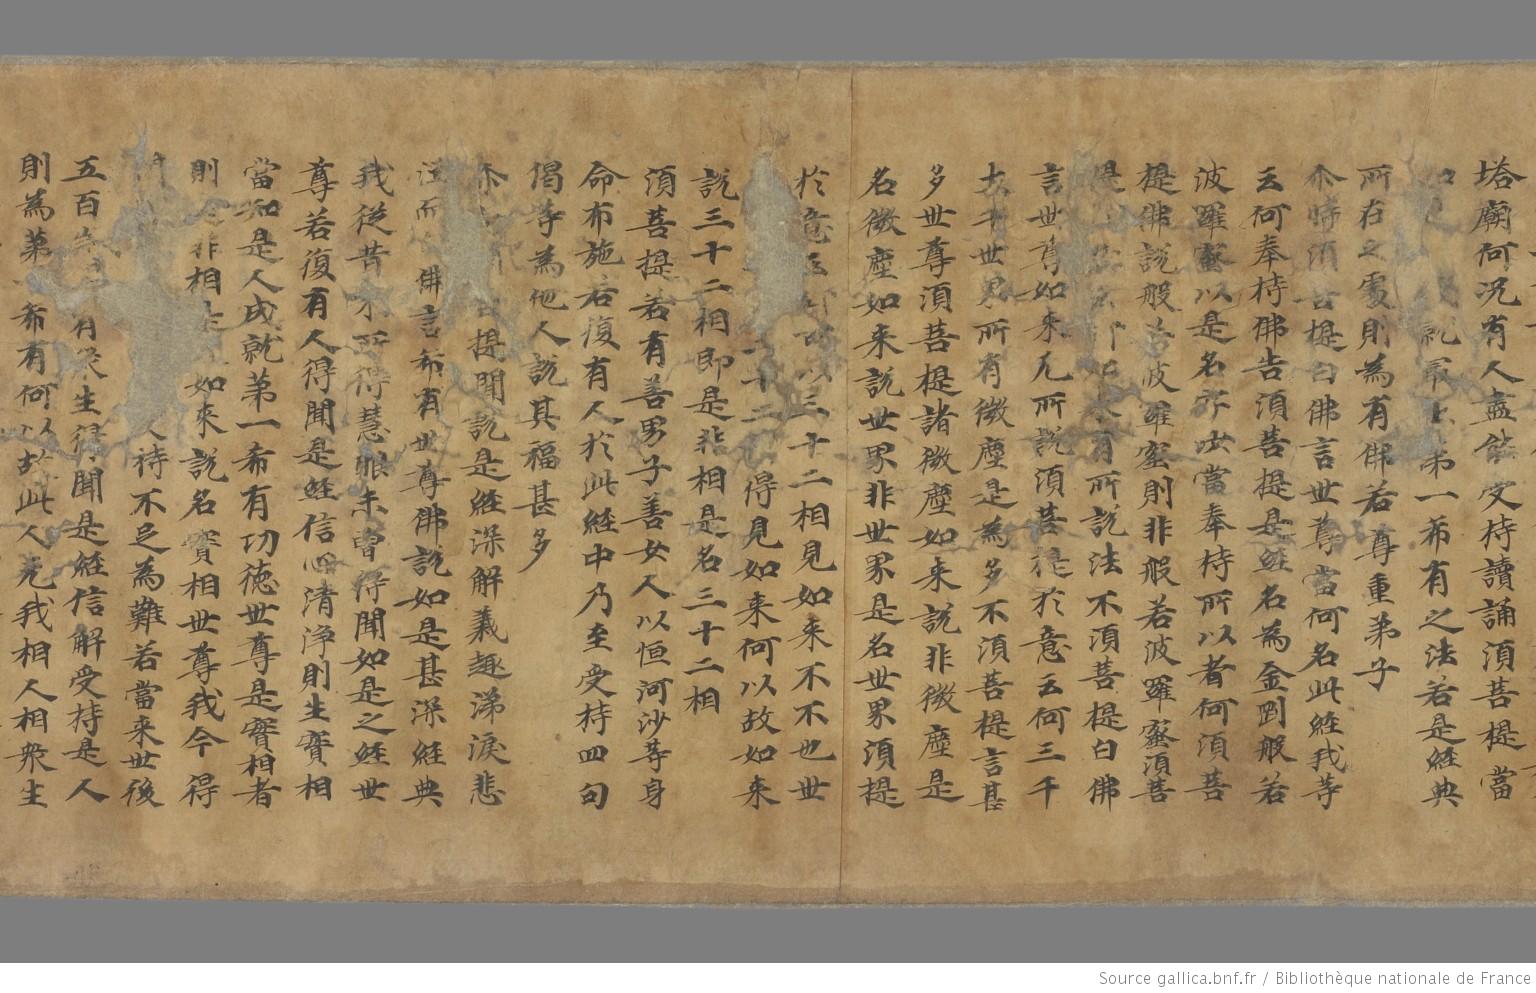 塔廟何況有人盡能受持讀誦須菩提當
就冣上第一希有之法若是經典
所在之處則為有佛若尊重弟子
尒時須菩提白佛言世尊當何名此經我等
云何奉持佛告須菩提是經名為金剛般若
波羅蜜以是名字汝當奉持所以者何須菩
提佛說般若波羅蜜則非般若波羅蜜須菩
提有所說法不須菩提白佛
言世尊如来无所說須菩提於意云何三千
大千世界所有微塵是為多不須菩提言甚
多世尊須菩提諸微塵如来說非微塵是
名微塵如来說世界非世界是名世界須提
於意云可以三十二相見如来不不也世
得見如来何以故如来
說三十二相即是非相是名三十二相
須菩提若有善男子善女人以恒河沙等身
命布施若復有人於此經中乃至受持四句
偈等為他人說其福甚多
尒提聞說是經深解義趣涕淚悲
泣而佛言希有世尊佛說如是甚深經典
我從昔来所得慧眼未曾得聞如是之經世
尊若復有人得聞是經信心清淨則生實相
當知是人成就第一希有功德世尊是實相者
則非相如来說名實相世尊我今得
持不足為難若當来世後
五百有衆生得聞是經信解受持是人
則為第希有何以故此人无我相人相衆生